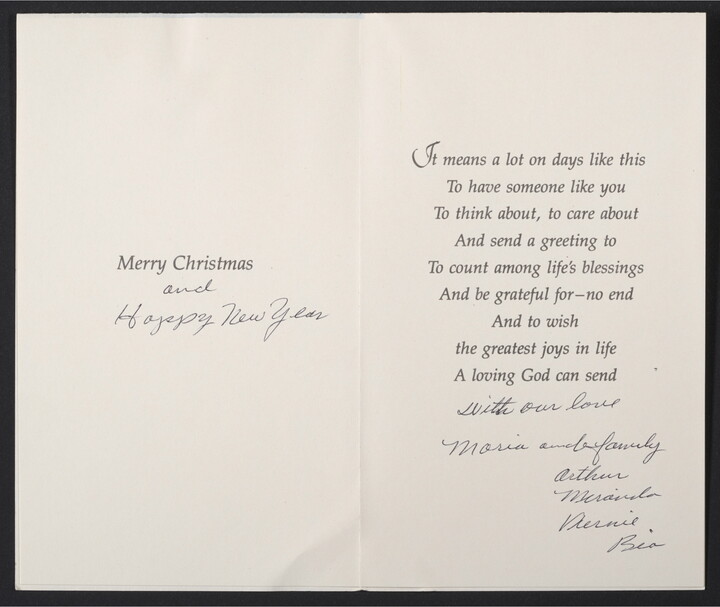 Merry Christmas
and
Happy New Year
It means a lot on days like this
To have someone like you
To think about, to care about
And send a greeting to
To count among life's blessings
And be grateful for—no end
And to wish
the greatest joys in life
A loving God can send
with our love
Maria and family
Arthur
Miranda
Bea